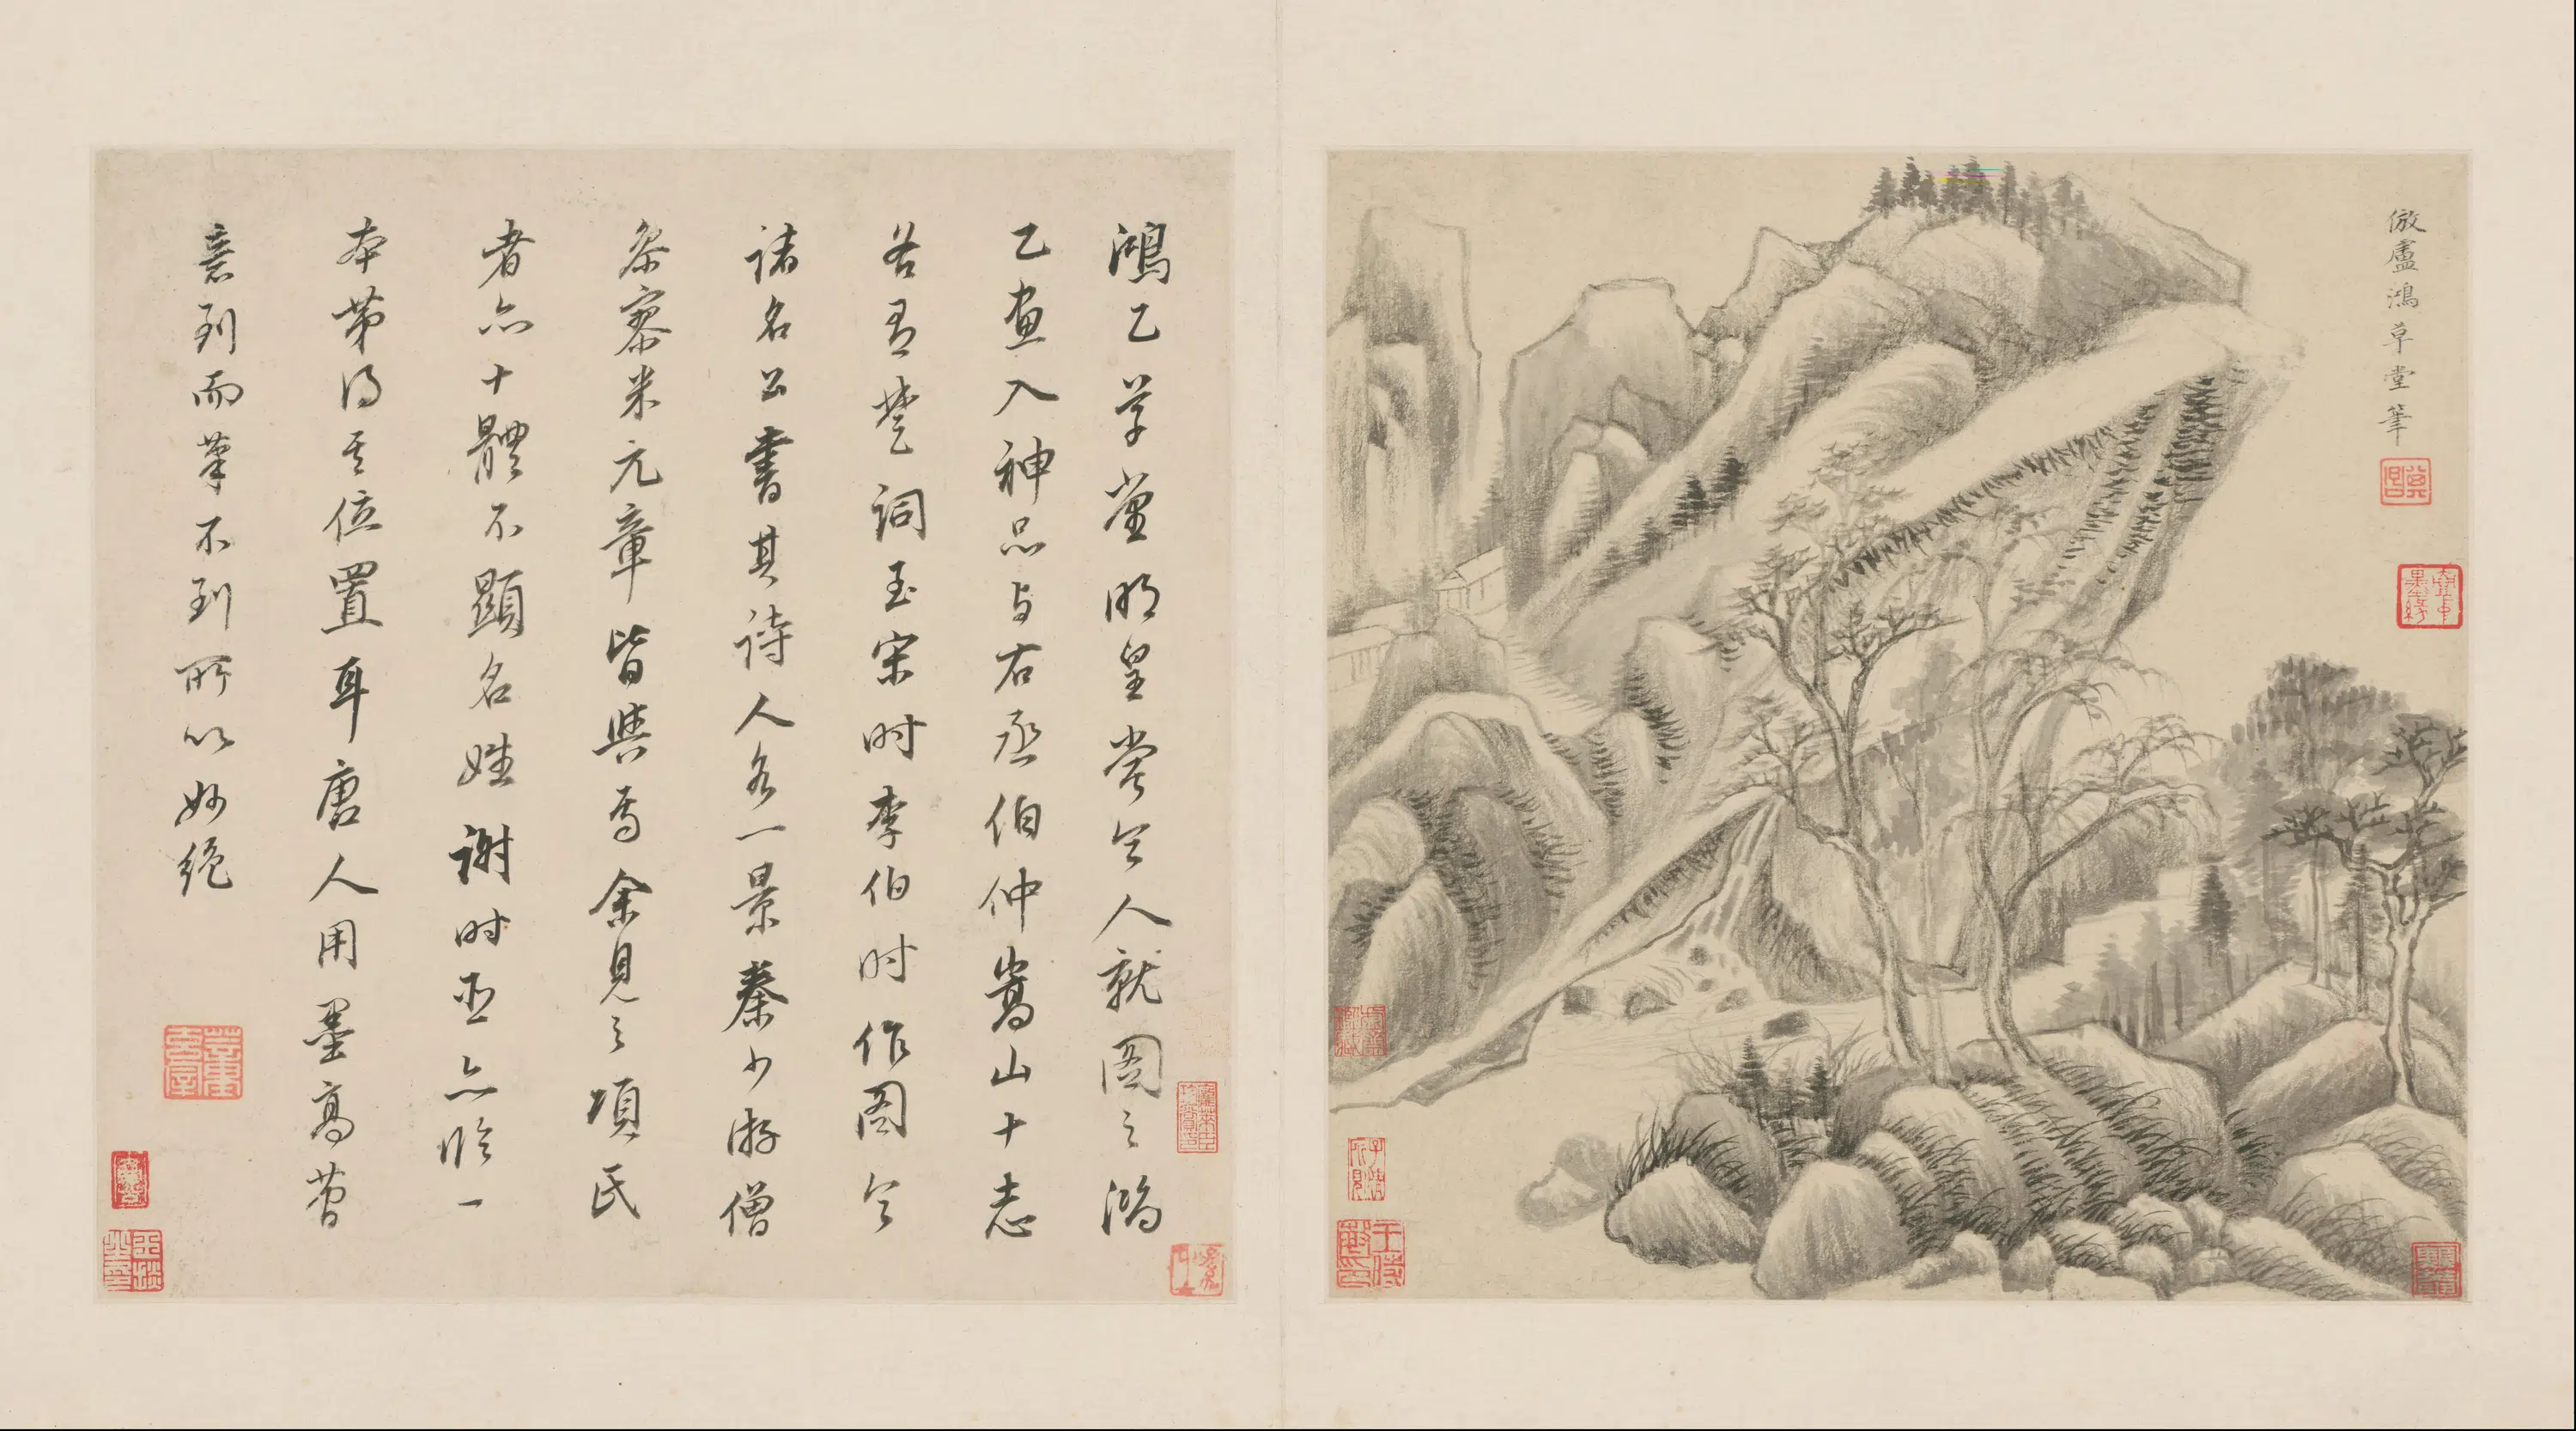 倣盧鴻草堂筆
其昌
鴻乙草堂明皇嘗令人就圖之鴻
乙畫入神品与右丞伯仲嵩山十志
各有楚詞至宋时李伯时作圖令
諸名公書其詩人各一景秦少游僧
參寥米元章皆與焉余見之項氏
者亦十體不顯名姓謝时臣亦臨一
本第得其位置耳唐人用墨高簡
意到而筆不到所以妙絕